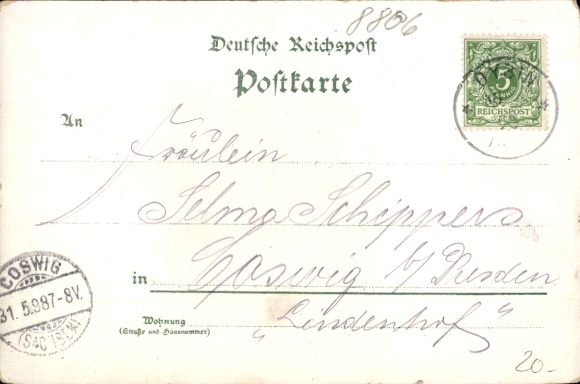 8806
Deutsche Reichspost
Postkarte
5
REICHSPOST
OYBIN
An
Fräulein
Selma Schippers
in Coswig b/Dresden
Wohnung
(Straße und Hausnummer)
„Lindenhof"
COSWIG
31. 5. 98 7-8V.
(SACHSEN)
20-